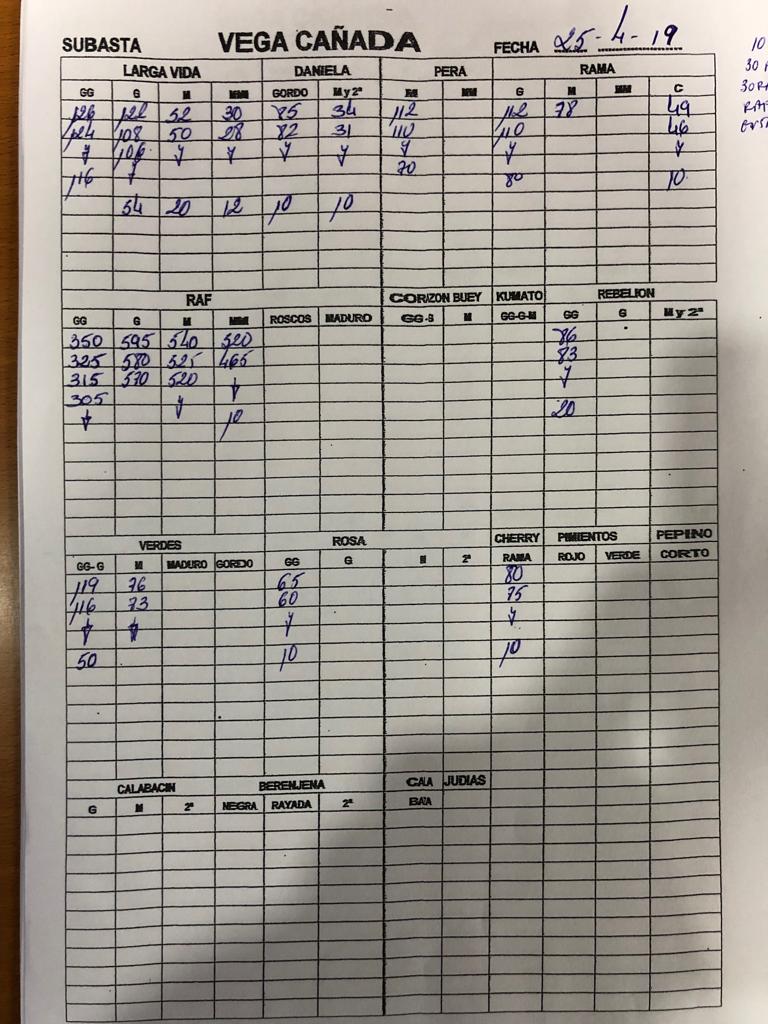 SUBASTA VEGA CAÑADA FECHA 25-4-19
LARGA VIDA DANIELA PERA RAMA
GG G M MM GORDO M y 2ª M MM G M MM C
126 122 52 30 85 34 112 112 78 49
124 108 50 28 82 31 110 110 46
106 70
116 80 10
54 20 12 10 10
RAF CORIZON BUEY KUMATO REBELION
GG G M MM ROSCOS MADURO GG-G M GG-G-M GG G M y 2ª
350 595 540 520 86
325 580 525 465 83
315 570 520
305 20
10
VERDES ROSA CHERRY PIMIENTOS PEPINO
GG-G M MADURO GORDO GG G M 2ª RAMA ROJO VERDE CORTO
119 76 65 80
116 73 60 75
50 10 10
CALABACIN BERENJENA CAIA JUDIAS
G M 2ª NEGRA RAYADA 2ª BAIA
10
30
30